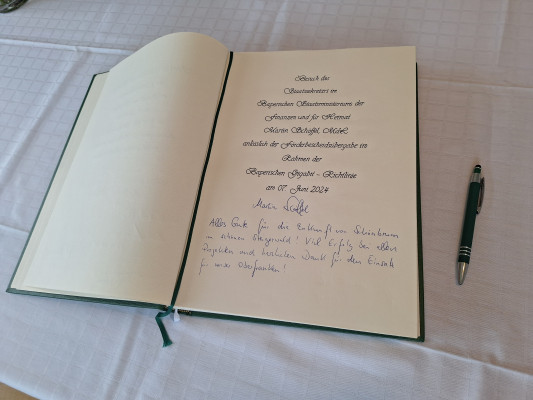 Besuch des
Staatssekretärs im
Bayerischen Staatsministerium der
Finanzen und für Heimat
Martin Schöffel, MdL
anlässlich der Förderbescheidsübergabe im
Rahmen der
Bayerischen Gigabit - Richtlinie
am 07. Juni 2024
Martin Schöffel
Alles Gute für die Zukunft von
im schönen Steigerwald! Viel Erfolg bei allen
Projekten und herzlichen Dank für den Einsatz
für unser Oberfranken!